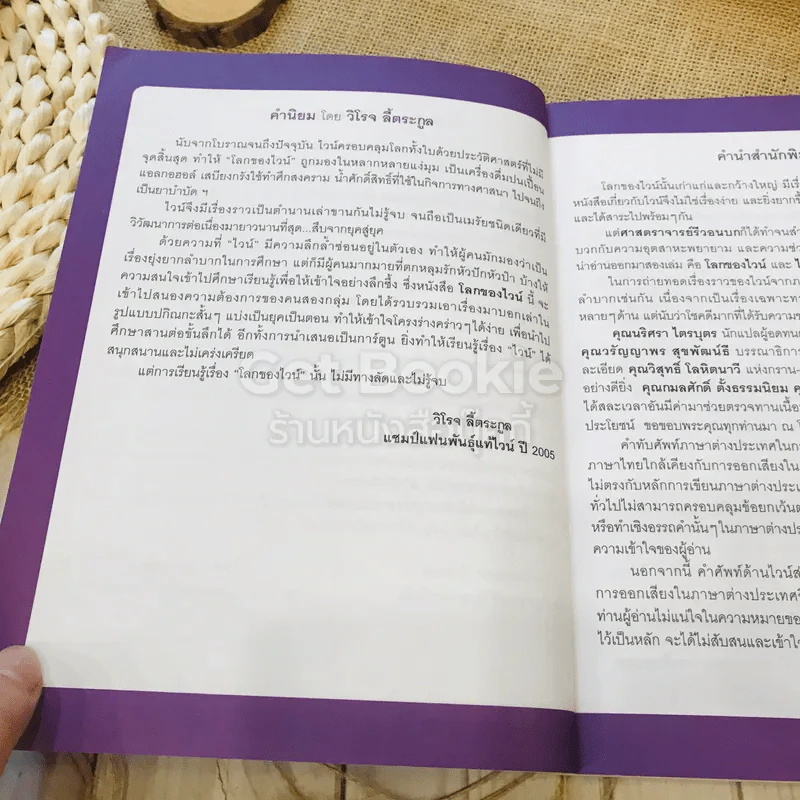 คำนิยม โดย วิโรจ ลี้ตระกูล
นับจากโบราณจนถึงปัจจุบัน ไวน์ครอบคลุมโลกทั้งใบด้วยประวัติศาสตร์ที่ไม่มี
จุดสิ้นสุด ทำให้ "โลกของไวน์" ถูกมองในหลากหลายแง่มุม เป็นเครื่องดื่มปนเปื้อน
แอลกอฮอล์ เสบียงกรังใช้ทำศึกสงคราม น้ำศักดิ์สิทธิ์ที่ใช้ในกิจการทางศาสนา ไปจนถึง
เป็นยาบำบัด ฯ
ไวน์จึงมีเรื่องราวเป็นตำนานเล่าขานกันไม่รู้จบ จนถือเป็นเมรัยชนิดเดียวที่มี
วิวัฒนาการต่อเนื่องมายาวนานที่สุด...สืบจากยุคสู่ยุค
ด้วยความที่ "ไวน์" มีความลึกล้ำซ่อนอยู่ในตัวเอง ทำให้ผู้คนมักมองว่าเป็น
เรื่องยุ่งยากลำบากในการศึกษา แต่ก็มีผู้คนมากมายที่ตกหลุมรักหัวปักหัวปำ บ้างให้
ความสนใจเข้าไปศึกษาเรียนรู้เพื่อให้เข้าใจอย่างลึกซึ้ง ซึ่งหนังสือ โลกของไวน์ นี้ จะ
เข้าไปสนองความต้องการของคนสองกลุ่ม โดยได้รวบรวมเอาเรื่องมาบอกเล่าใน
รูปแบบปกิณกะสั้นๆ แบ่งเป็นยุคเป็นตอน ทำให้เข้าใจโครงร่างคร่าวๆได้ง่าย เพื่อนำไป
ศึกษาสานต่อขั้นลึกได้ อีกทั้งการนำเสนอเป็นการ์ตูน ยิ่งทำให้เรียนรู้เรื่อง "ไวน์" ได้
สนุกสนานและไม่เคร่งเครียด
แต่การเรียนรู้เรื่อง "โลกของไวน์" นั้น ไม่มีทางลัดและไม่รู้จบ
วิโรจ ลี้ตระกูล
แชมป์แฟนพันธุ์แท้ไวน์ ปี 2005
Get Bookie
ร้านหนังสือบุ๊คกี้
คำนำสำนักพิม
โลกของไวน์นั้นเก่าแก่และกว้างใหญ่ มีเรื่
หนังสือเกี่ยวกับไวน์จึงไม่ใช่เรื่องง่าย และยิ่งยากขึ้
และได้สาระไปพร้อมๆกัน
แต่ศาสตราจารย์ชีวอนบกก็ได้ทำจนสำ
บวกกับความอุตสาหะพยายาม และความช่ว
น่าอ่านออกมาสองเล่ม คือ โลกของไวน์ และ ไ
ในการถ่ายทอดเรื่องราวของไวน์จากภา
ลำบากเช่นกัน เนื่องจากเป็นเรื่องเฉพาะทา
หลายๆด้าน แต่นับว่าโชคดีมากที่ได้รับความช
คุณนริศรา ไตรบุตร นักแปลผู้อดทน
คุณวรัญญาพร สุขพัฒน์ธี บรรณาธิกา
ละเอียด คุณวิสุทธิ์ โลหิตนาวี แห่งกราน-
อย่างดียิ่ง คุณกมลศักดิ์ ตั้งธรรมนิยม คุ
ได้สละเวลาอันมีค่ามาช่วยตรวจทานเนื้อ
ประโยชน์ ขอขอบพระคุณทุกท่านมา ณ โ
คำทับศัพท์ภาษาต่างประเทศในกา
ภาษาไทยใกล้เคียงกับการออกเสียงใน
ไม่ตรงกับหลักการเขียนภาษาต่างประเ
ทั่วไปไม่สามารถครอบคลุมข้อยกเว้นต
หรือทำเชิงอรรถคำนั้นๆในภาษาต่างปร
ความเข้าใจของผู้อ่าน
นอกจากนี้ คำศัพท์ด้านไวน์ส่
การออกเสียงในภาษาต่างประเทศจึ
ท่านผู้อ่านไม่แน่ใจในความหมายขอ
ไว้เป็นหลัก จะได้ไม่สับสนและเข้าใ